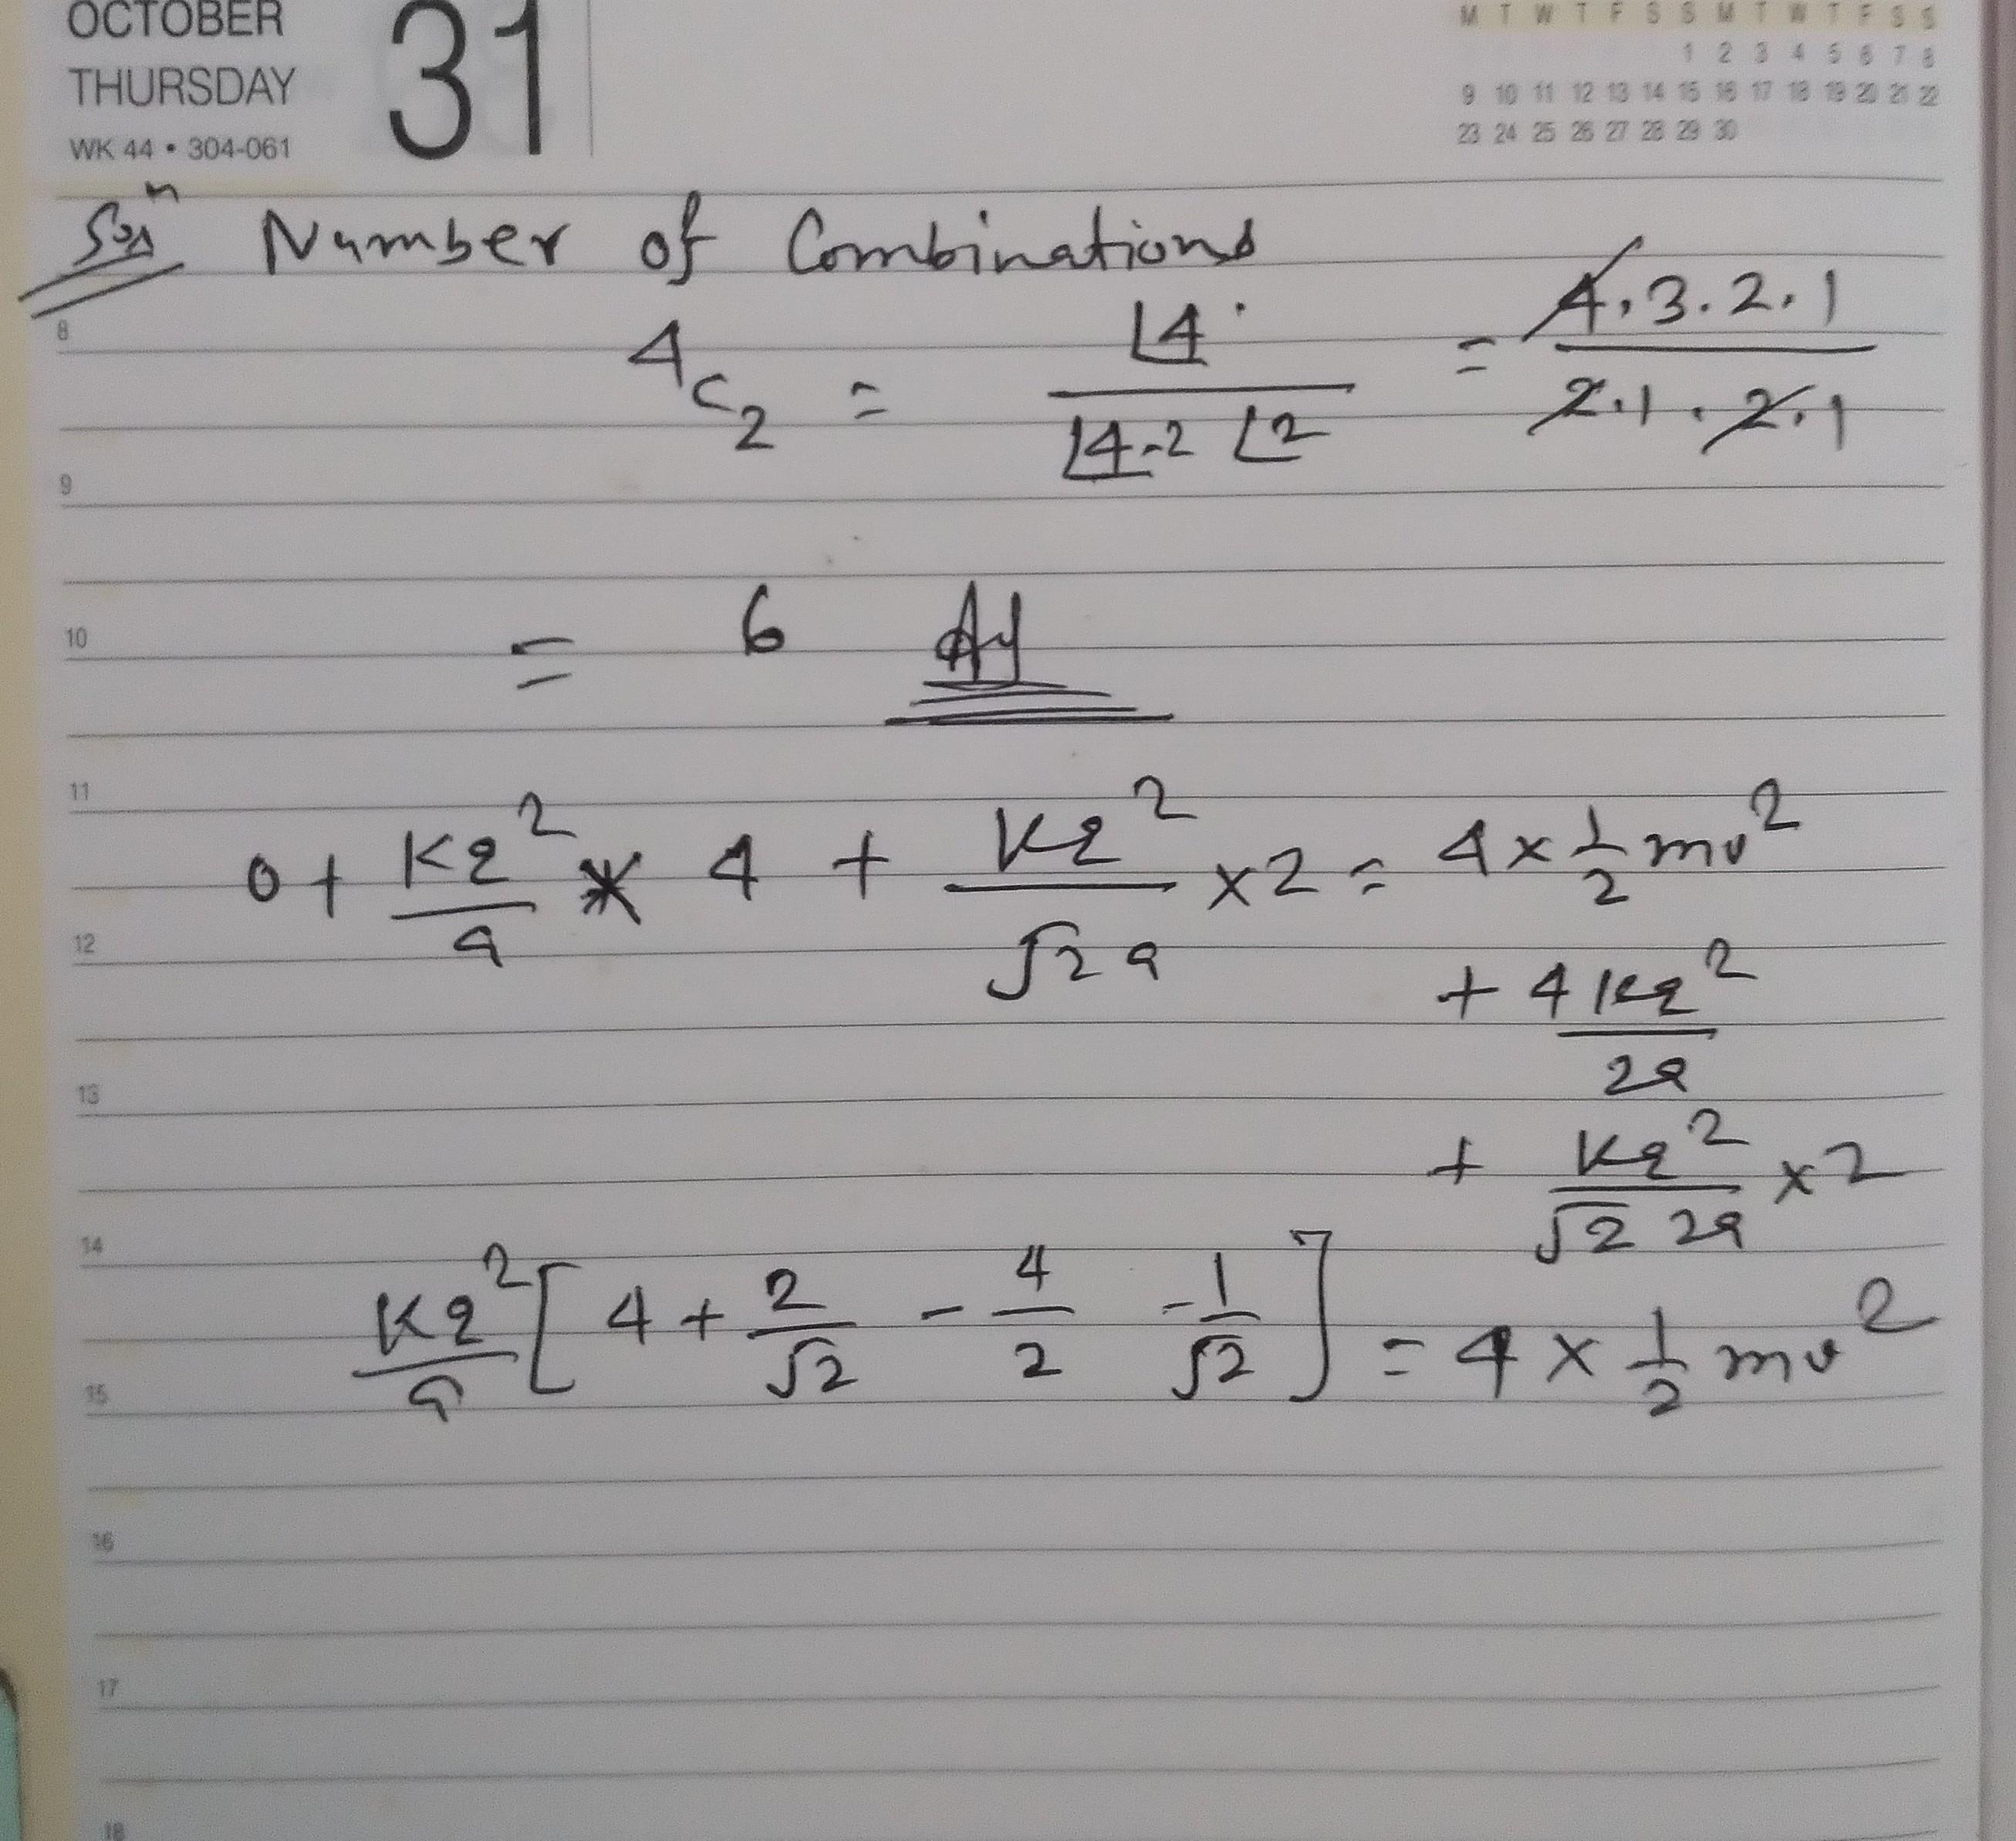 OCTOBER
THURSDAY
WK 44 • 304-061
31
M T W T F S S M T W T F S S
1 2 3 4 5 6 7 8
9 10 11 12 13 14 15 16 17 18 19 20 21 22
23 24 25 26 27 28 29 30
Solⁿ Number of Combinations
8
4C₂ = ⌊4 / ⌊4-2 ⌊2 = 4.3.2.1 / 2.1.2.1
9
10
= 6 Ay
11
0 + Kq²/a * 4 + Kq²/√2 a × 2 = 4 × 1/2 mv²
12
+ 4 Kq²/2a
13
+ Kq²/√2 2a × 2
14
Kq²/a [ 4 + 2/√2 - 4/2 - 1/√2 ] = 4 × 1/2 mv²
15
16
17
18